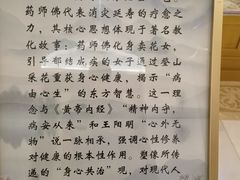 药师佛代表消灾延寿的疗愈之
力，其核心思想体现于著名教
化故事：药师佛化身卖花女，
引导郁结成疾的女子通过登山
采花重获身心健康，揭示“病
由心生”的东方智慧。这一理
念与《黄帝内经》“精神内守，
病安从来”和王阳明“心外无
物”说一脉相承，强调心性修养
对健康的根本性作用。塑像所传
递的“身心共治”观，对现代人